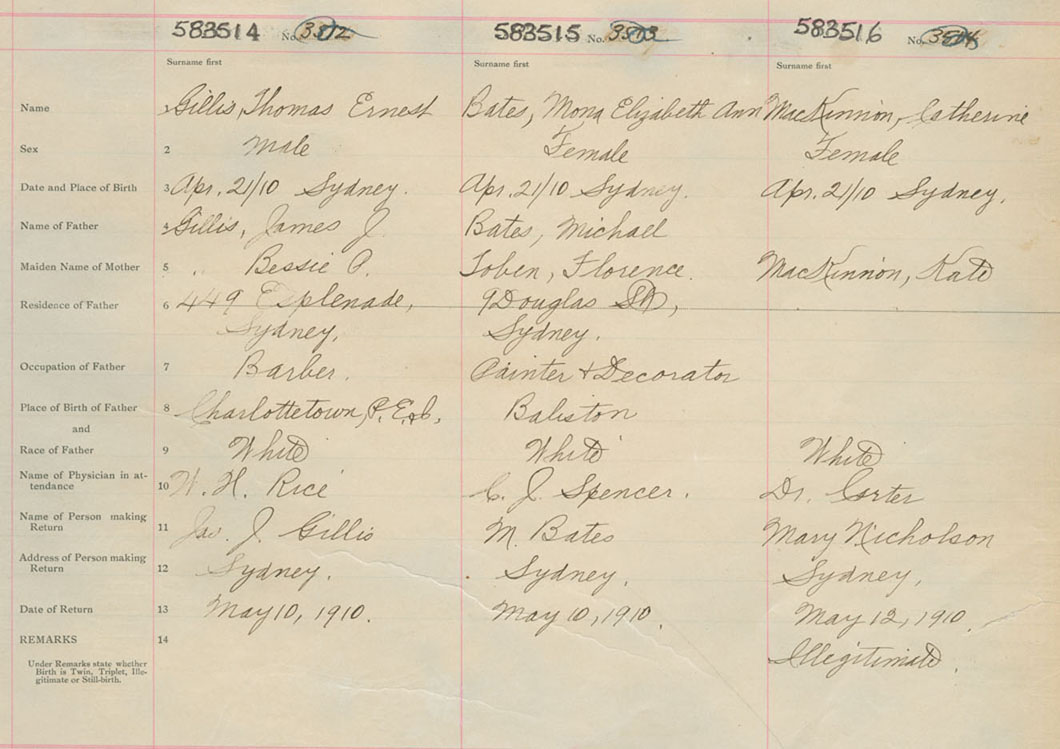 583514 No. 3512 583515 No. 3513 583516 No. 3514
Surname first Surname first Surname first
Name 1 Gillis, Thomas Ernest Bates, Mona Elizabeth Ann MacKinnon, Catherine
Sex 2 Male Female Female
Date and Place of Birth 3 Apr. 21/10 Sydney. Apr. 21/10 Sydney. Apr. 21/10 Sydney.
Name of Father 4 Gillis, James J. Bates, Michael
Maiden Name of Mother 5 " Bessie P. Tobin, Florence. MacKinnon, Kate
Residence of Father 6 449 Esplenade, 9 Douglas St,
Sydney. Sydney.
Occupation of Father 7 Barber. Painter & Decorator
Place of Birth of Father 8 Charlottetown, P.E.I. Baliston
and
Race of Father 9 White White White
Name of Physician in at-
tendance 10 W. H. Rice C. J. Spencer. Dr. Corter
Name of Person making
Return 11 Jas. J. Gillis M. Bates Mary Nicholson
Address of Person making
Return 12 Sydney. Sydney. Sydney.
Date of Return 13 May 10, 1910. May 10, 1910. May 12, 1910.
REMARKS 14
Illegitimate.
Under Remarks state whether
Birth is Twin, Triplet, Ille-
gitimate or Still-birth.